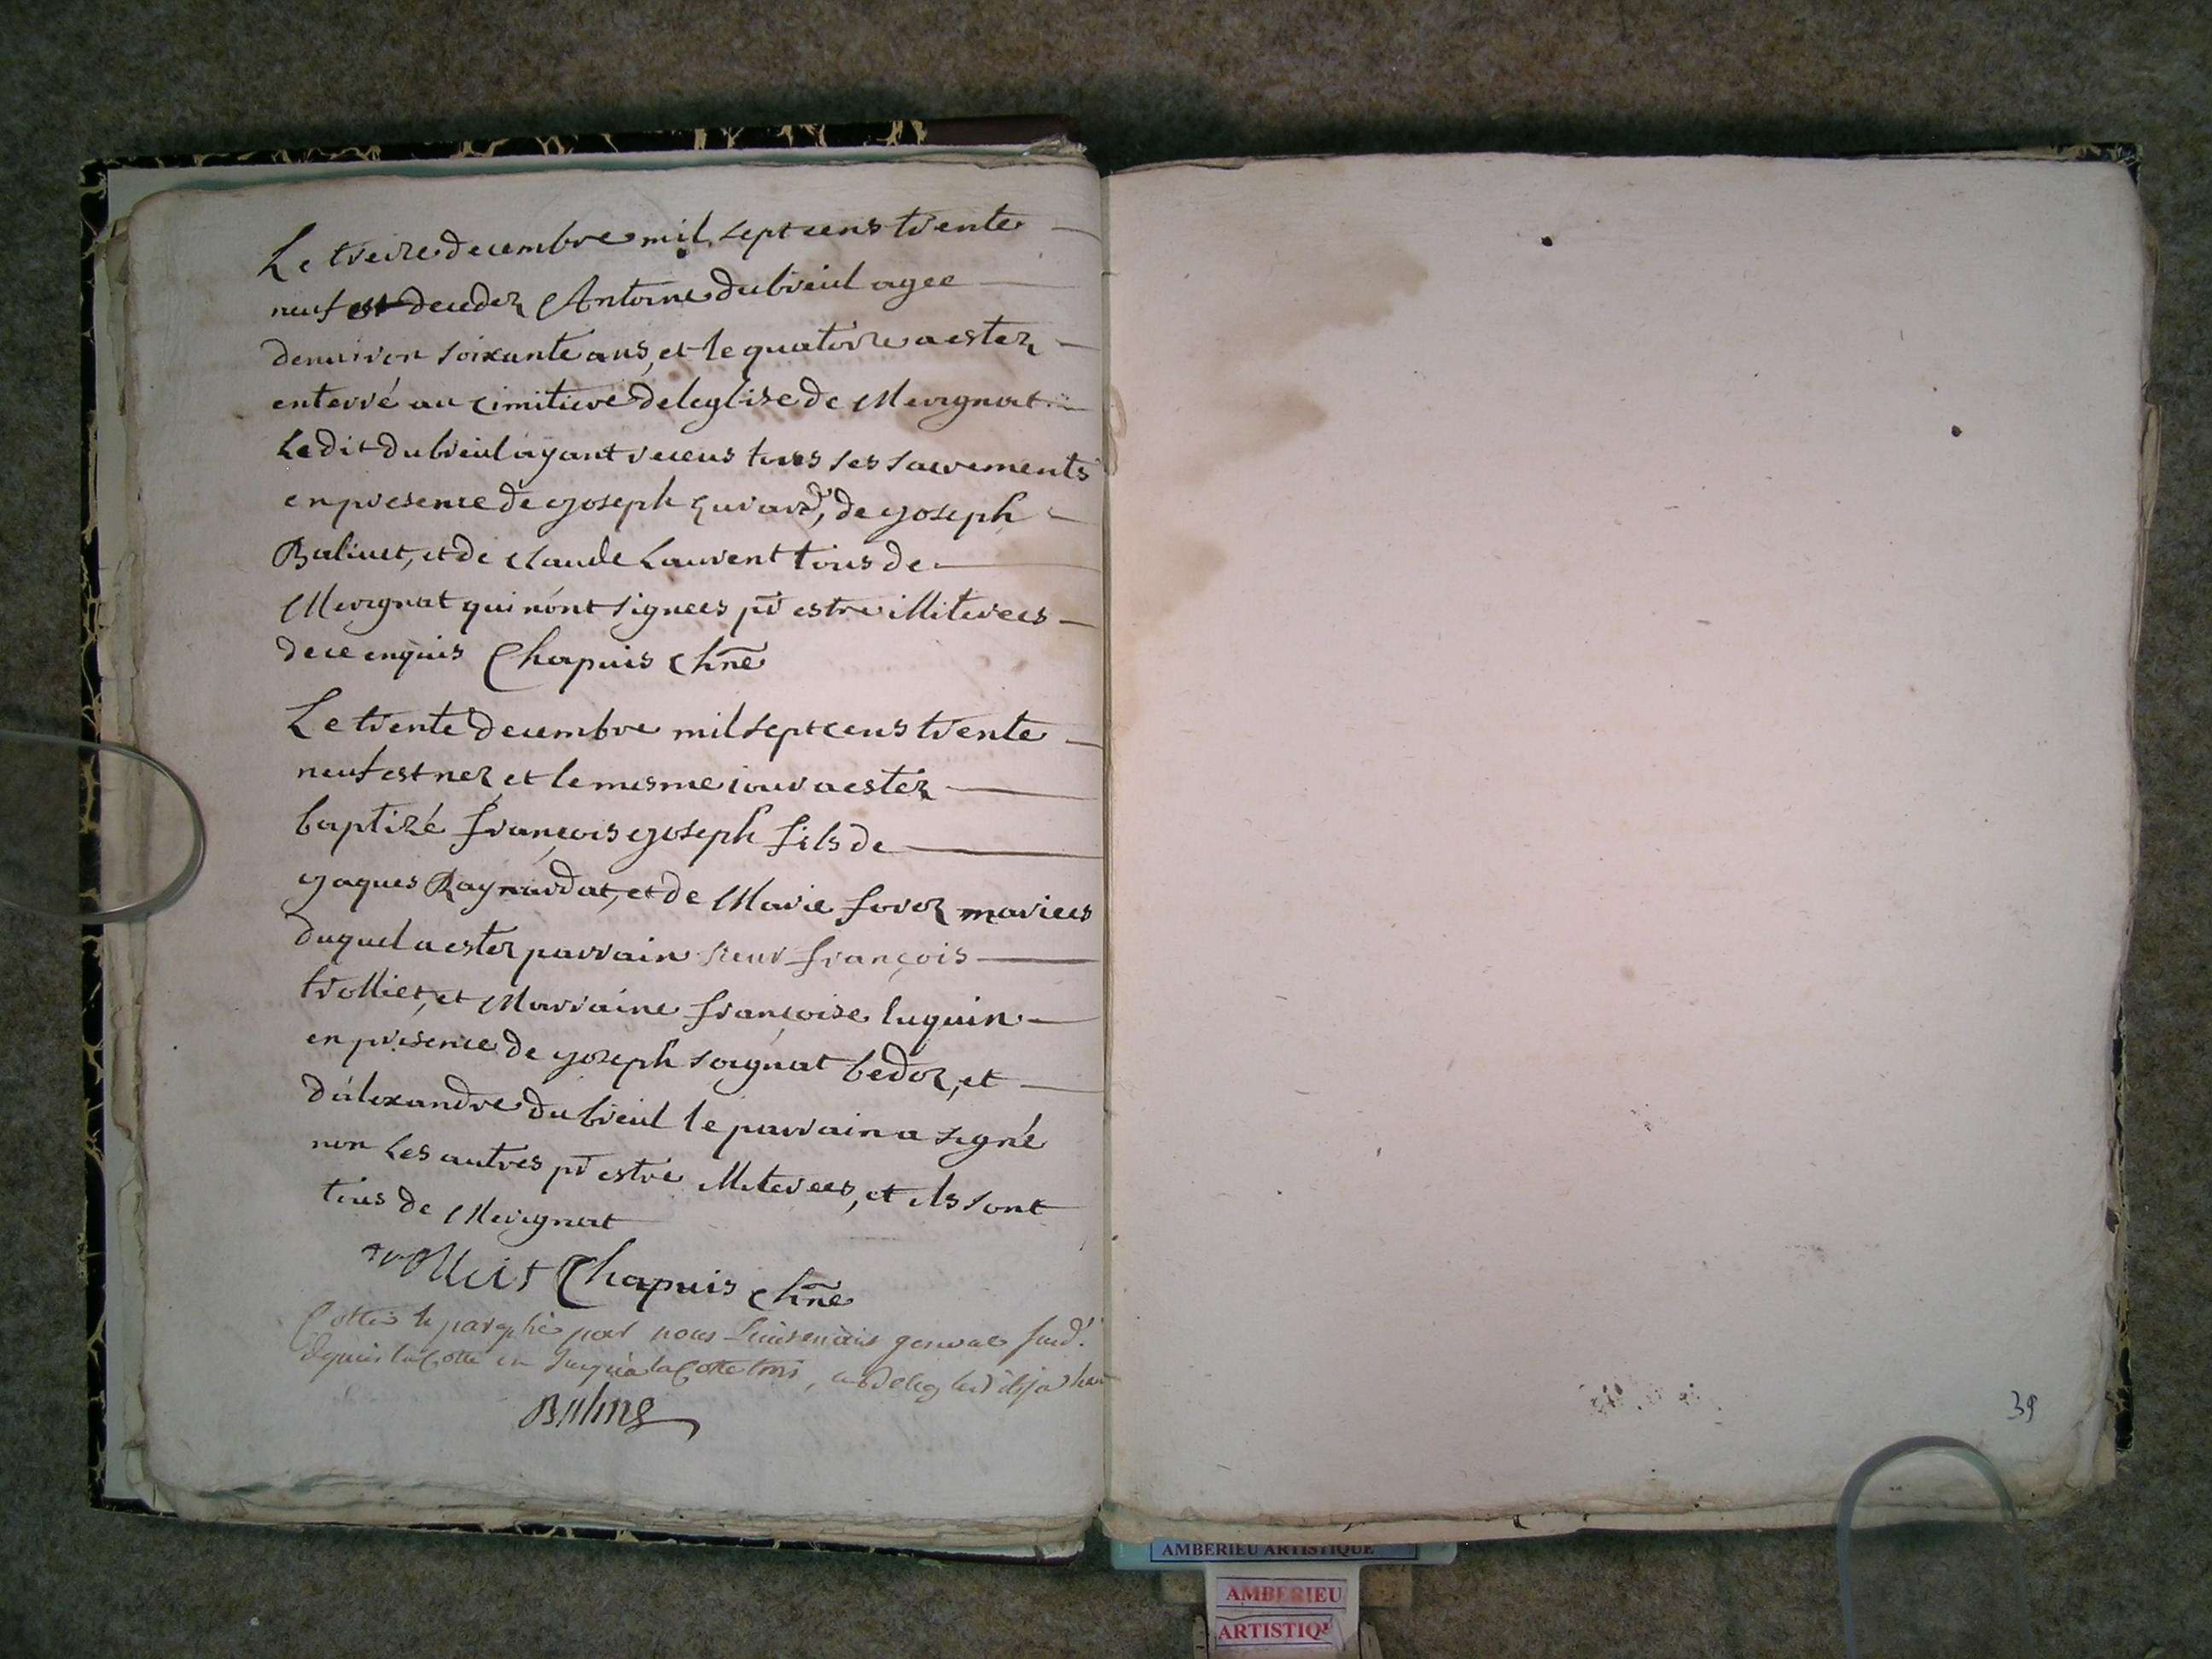 Le treize decembre mil sept cens trente
neuf est decedez Antoine dubreul agee
denuiron soixante ans, et le quatorze a estez
enterré au cimitiere de leglise de Merignat
Le dit dubreul ayant receus tous ses sacrements
en presence de Joseph, de Joseph
Balivet, et de Claude Laurent tous de
Merignat qui nont signees pr estre illiterees
de ce enquis Chapuis
Le trente decembre mil sept cens trente
neuf est nez, et le mesme iour a estéz
baptizé françois Joseph fils de
Jaques Raynardat, et de Marie mariees
duquel a estez parrain sieur françois
trolliet, et Marraine françoise luquin
en presence de Joseph soignat bedoz, et
d'alexandre dubreul le parrain a signé
non Les autres pr estre illiterees, et ils sont
tous de Merignat
trolliet Chapuis
Cottéé & paraphé par nous Lieutenant general
depuis la Cotte un Jusqu'a la Cotte
39
AMBERIEU ARTISTIQUE
AMBERIEU
ARTISTIQ